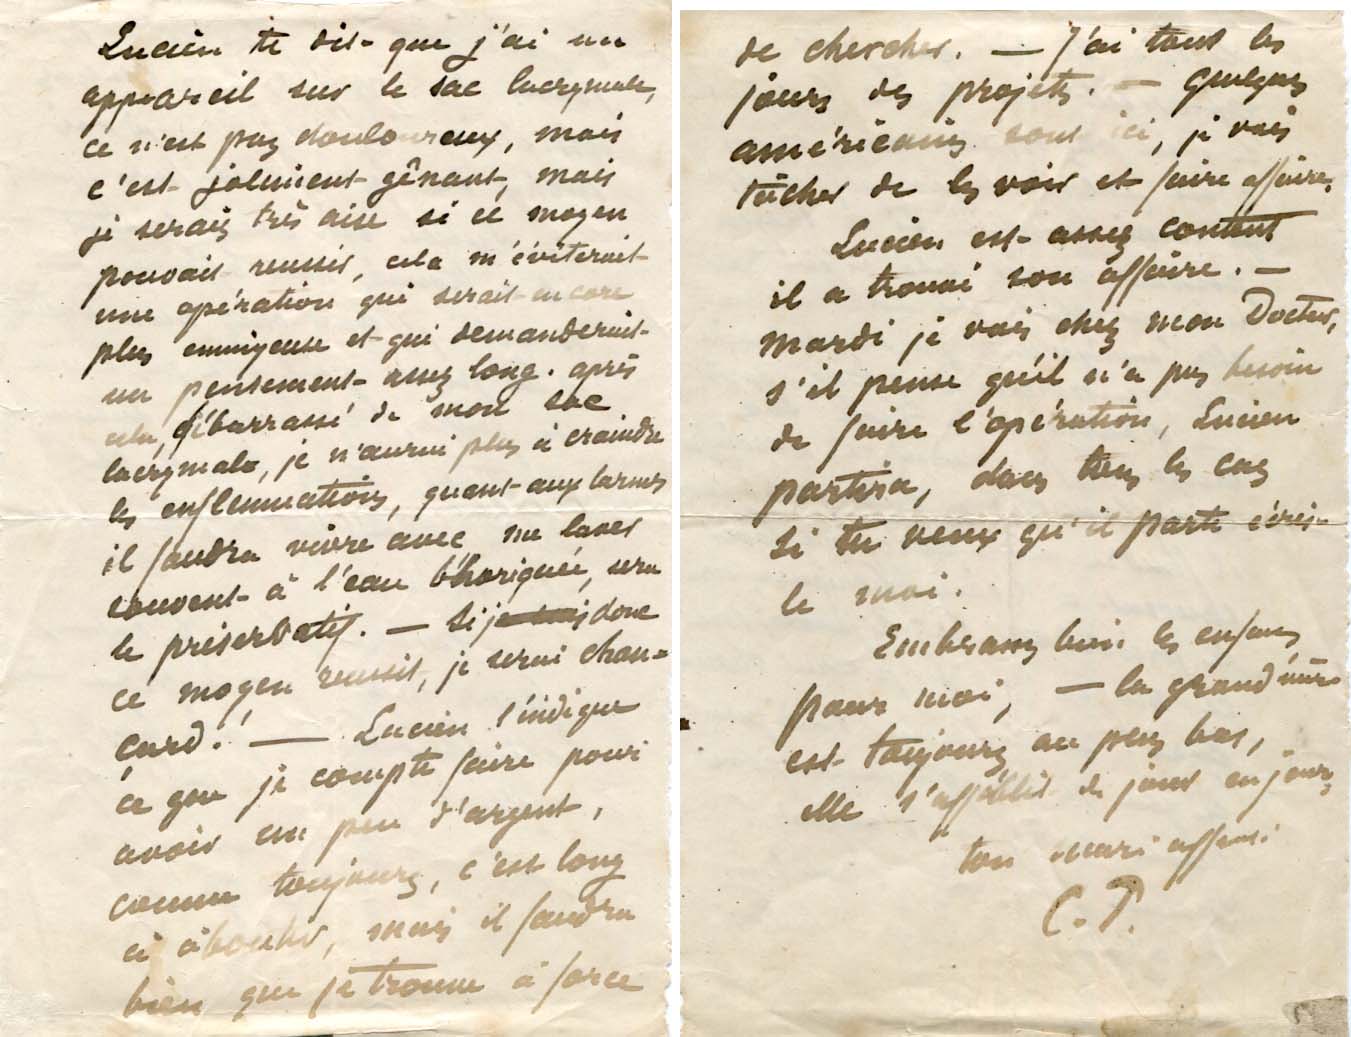 Lucien te dit que j'ai un
appareil sur le sac lacrymale,
ce n'est pas douloureux, mais
c'est joliment gênant, mais
je serais très aise si ce moyen
pouvait reussir, cela m'éviterait
une opération qui serait encore
plus ennuyeuse et qui demanderait
un pensement assez long. après
cela, débarrassé de mon sac
lacrymale, je n'aurai plus à craindre
les enflammations, quant aux larmes
il faudra vivre avec, me laver
souvent à l'eau bhoriquée, sera
le préservatif. — Si je donc
ce moyen reussit, je serai chan=
çard. — Lucien t'indique
ce que je compte faire pour
avoir un peu d'argent,
comme toujours, c'est long
à aboutir, mais il faudra
bien que je trouve à force
de chercher. — J'ai tous les
jours des projets. — Quelques
américains sont ici, je vais
tâcher de les voir et faire affaires.
Lucien est assez content
il a trouvé son affaire. —
mardi je vais chez mon Docteur,
s'il pense qu'il n'a pas besoin
de faire l'opération, Lucien
partira, dans tous les cas
si tu veux qu'il parte écris
le moi.
Embrasses bien les enfants
pour moi, — la grand'mère
est toujours au plus bas,
elle s'affaiblit de jour en jour,
ton mari affect.
C. P.